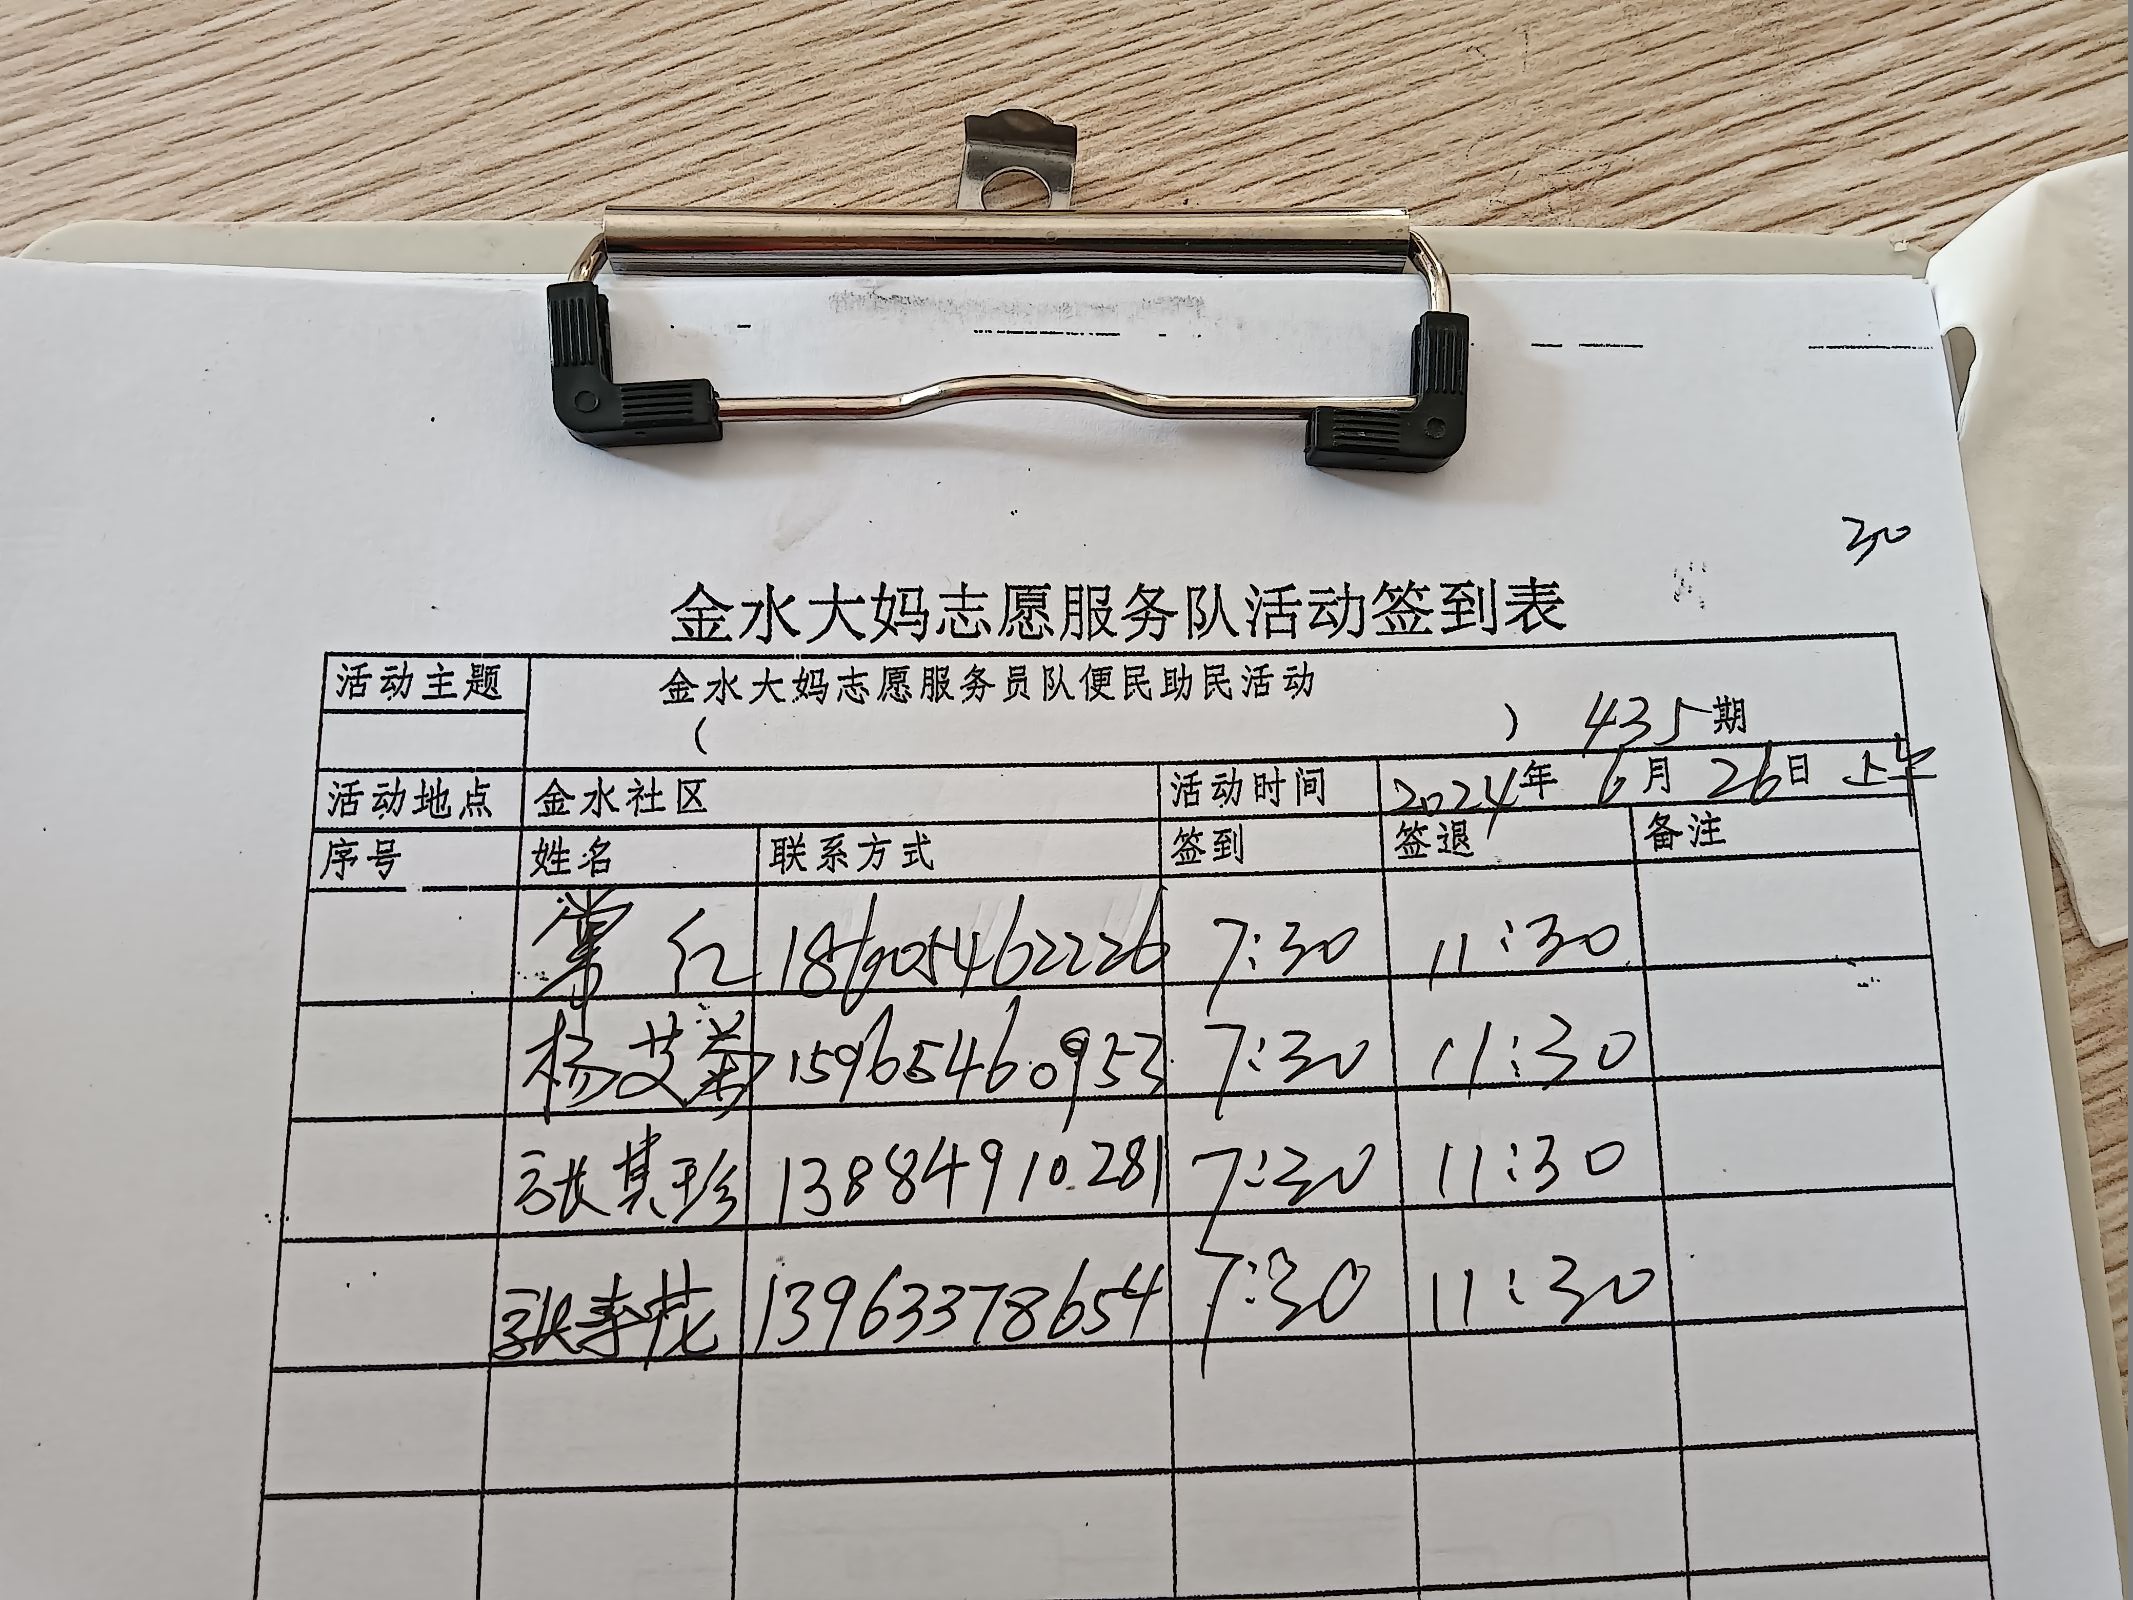 30
金水大妈志愿服务队活动签到表
活动主题 金水大妈志愿服务员队便民助民活动
( ) 435期
活动地点 金水社区 活动时间 2024年 6月 26日 上午
序号 姓名 联系方式 签到 签退 备注
常红 18605462226 7:30 11:30
杨艾菊 15965460953 7:30 11:30
张其珍 13884910281 7:30 11:30
张春花 13963378654 7:30 11:30